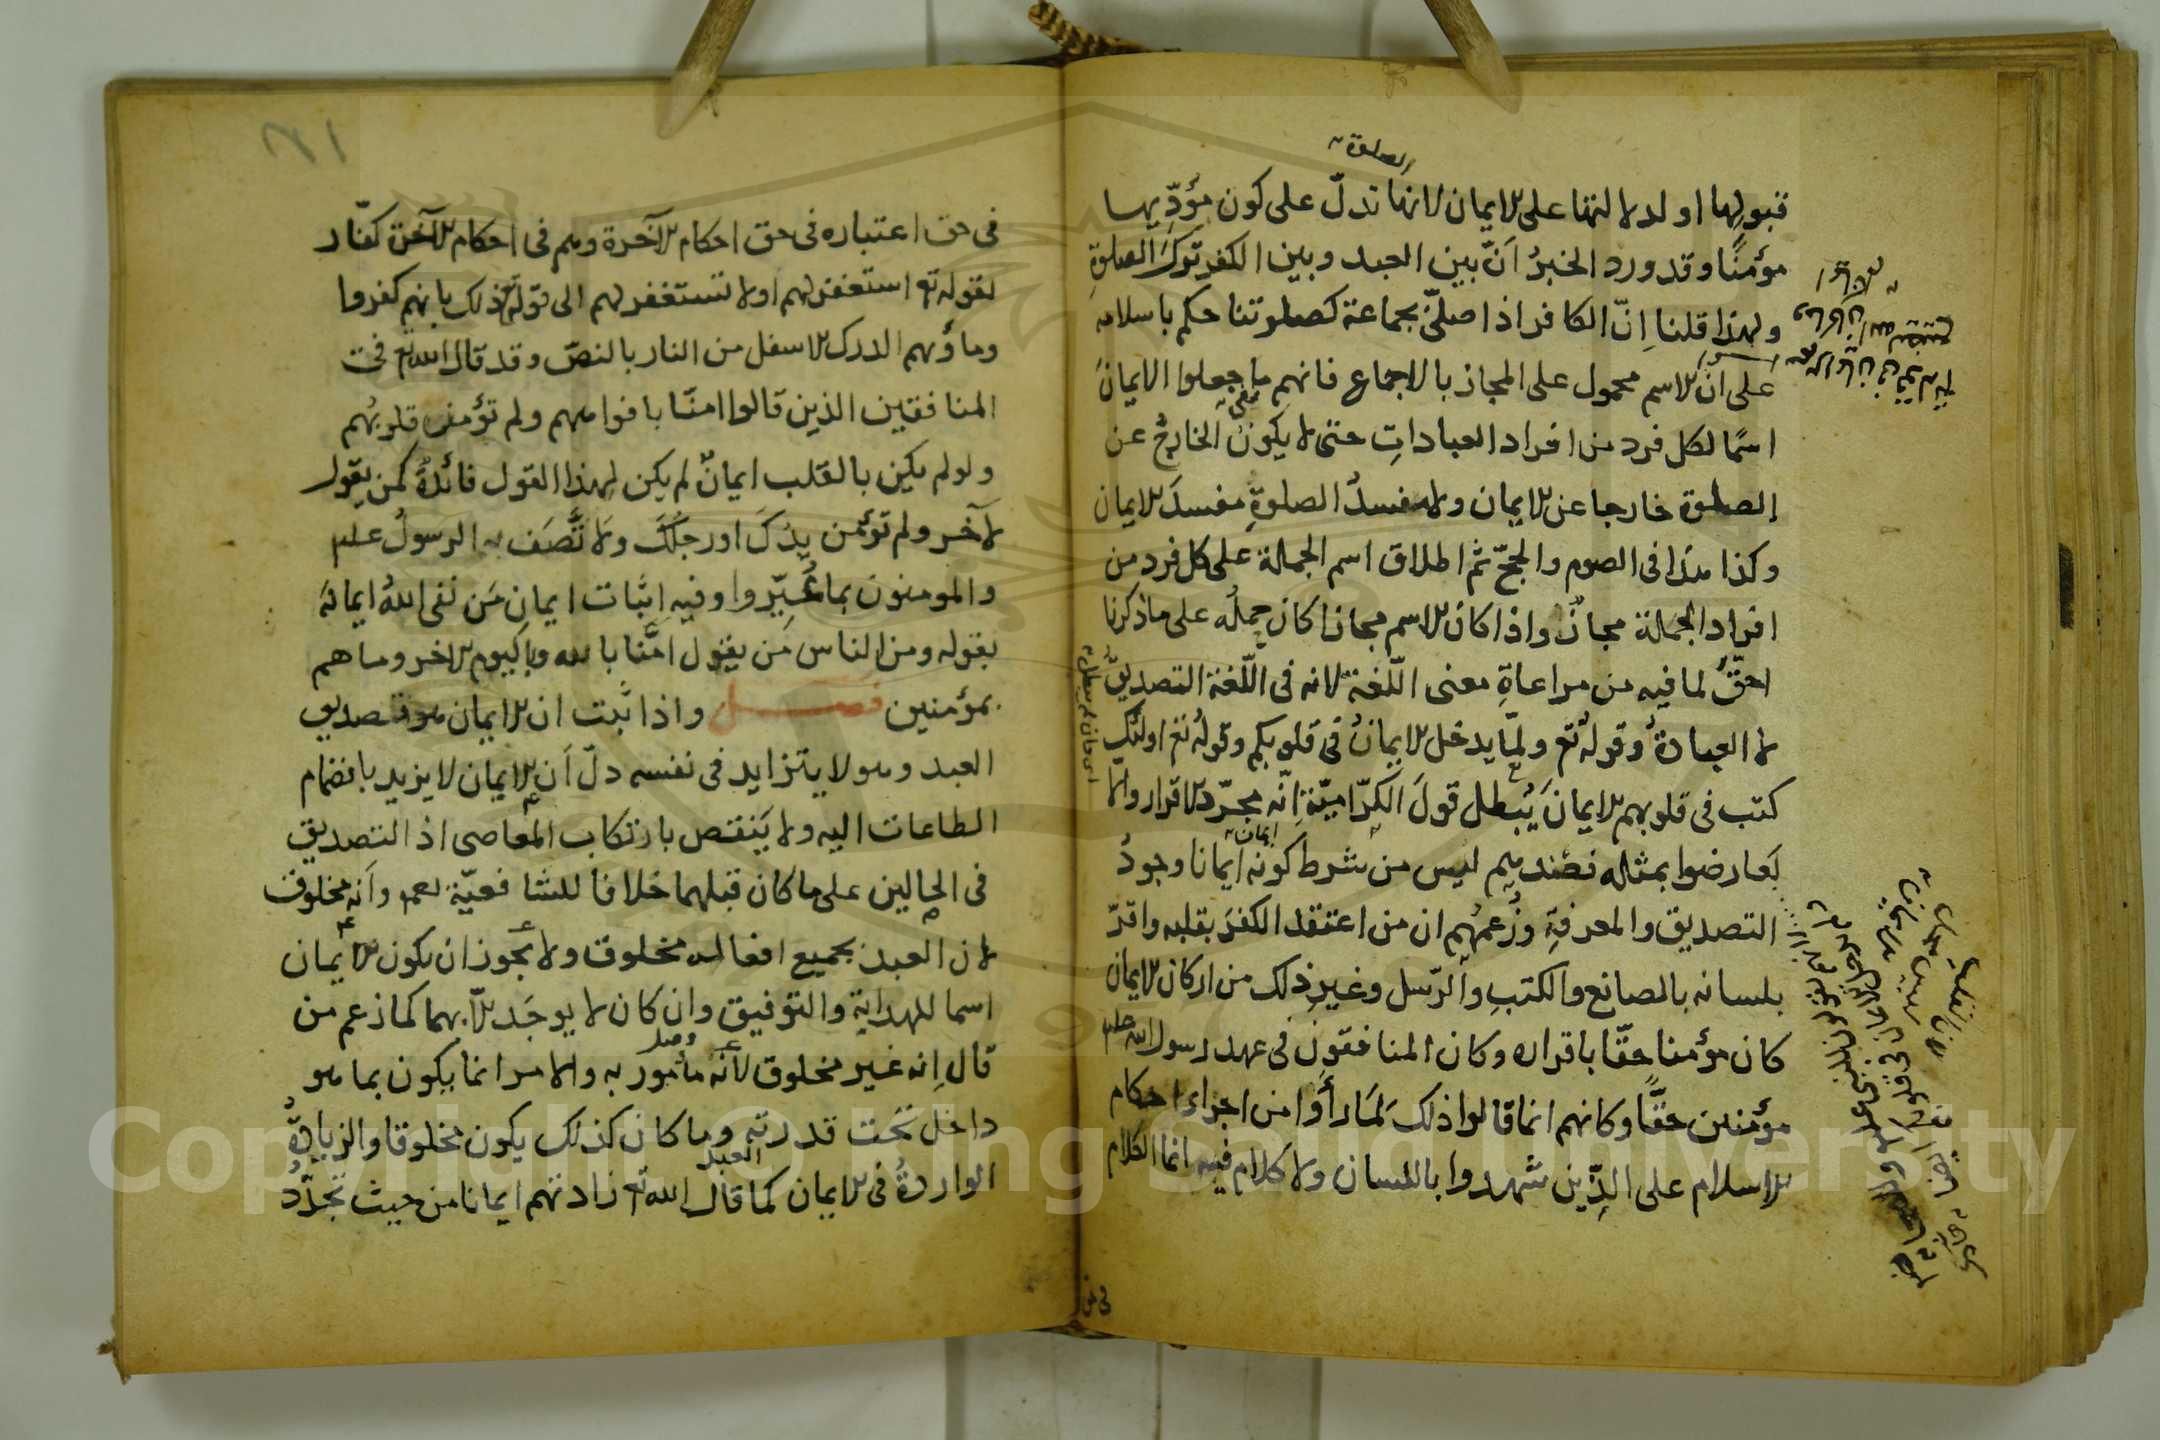 الصلوة
قبولها او لدلالتها على الايمان لانها تدلّ على كون مؤدّيها
مؤمنًا وقد ورد الخبرُ اَنّ بين العبد وبين الكفر تركَ الصلوةِ
ولهذا قلنا اِنّ الكافر اذا صلّى بجماعة كصلوتنا حكم باسلامه
على انّ الاسم محمول على المجاز بالاجماع فانهم ما جعلوا الايمانَ
اسمًا لكل فرد من افراد العباداتِ حتى لا يكونُ الخارجُ عن
الصلوة خارجا عن الايمان ولا مفسدُ الصلوةِ مفسدَ الايمان
وكذا هذا في الصوم والحجّ ثم اطلاق اسم الجملة على كل فرد من
افراد الجملة مجازٌ واذا كان الاسم مجازا كان حملُه على ما ذكرنا
احقَّ لما فيه من مراعاةِ معنى اللّغة لانه في اللّغة التصديق
لا العبادةُ وقولُه تع ولمّا يدخل الايمانُ في قلوبكم وقولُه تع اولئك
كتب في قلوبهم الايمانَ يُبطل قولَ الكرّامية اِنّه مجرّد الاقرار والا
لعارضوا بمثله فعندهم ليس من شرط كونه ايمانا وجودُ
ايمان
التصديق والمعرفةِ وزُعمُهم ان من اعتقد الكفرَ بقلبه واقرّ
بلسانه بالصانع والكتبِ والرّسل وغيرِ ذلك من اركان الايمان
كان مؤمنا حقّا باقراره وكان المنافقون في عهد رسول الله صلعم
مؤمنين حقًّا وكانهم انما قالوا ذلك لمَا رأوا من اجراء احكام
الاسلام على الذّين شهدوا باللسان ولا كلام فيه انما الكلام
في حق
١٧١
في حق اعتباره في حق احكام الآخرة وهم في احكام الآخرة كفّار
لقوله تع استغفر لهم او لا تستغفر لهم الى قوله ذلك بانهم كفروا
ومأوٰيهم الدرك الاسفل من النار بالنصّ وقد قال الله تع في
المنافقين الذين قالوا امنّا بافواههم ولم تؤمن قلوبُهم
ولو لم يكن بالقلب ايمانٌ لم يكن لهذا القول فائدةٌ كمن يقول
لآخر ولم تؤمن يدُكَ او رجلُكَ ولاتَّصَف به الرسولُ علم
والمومنون بما عُيِّروا وفيه اِثبات ايمانِ مَن نفى اللهُ ايمانَه
بقوله ومن الناس مَن يقول امَنّا بالله وباليوم الاخر وما هم
بمؤمنين فصل واذا ثبت ان الايمان هو تصديق
العبد وهو لا يتزايد في نفسه دلّ اَن الايمان لا يزيد بانضمام
الطاعات اليه ولا يَنقص بارتكاب المعاصى اذ التصديق
في الحالين على ما كان قبلهما خلافا للشافعيّة وانه مخلوق
لان العبد بجميع افعاله مخلوق ولا يجوز ان يكون الايمان
اسما للهداية والتوفيق وان كان لا يوجَد الّا بهما كما زعم من
قال اِنه غير مخلوق لانّه مأمور به والامر انما يكون بما هو
داخل تحت قدرته وما كان كذلك يكون مخلوقا والزيادةُ
العبد
الواردةُ في الايمان كما قال الله تع زادتهم ايمانا من حيث تجدّدُ